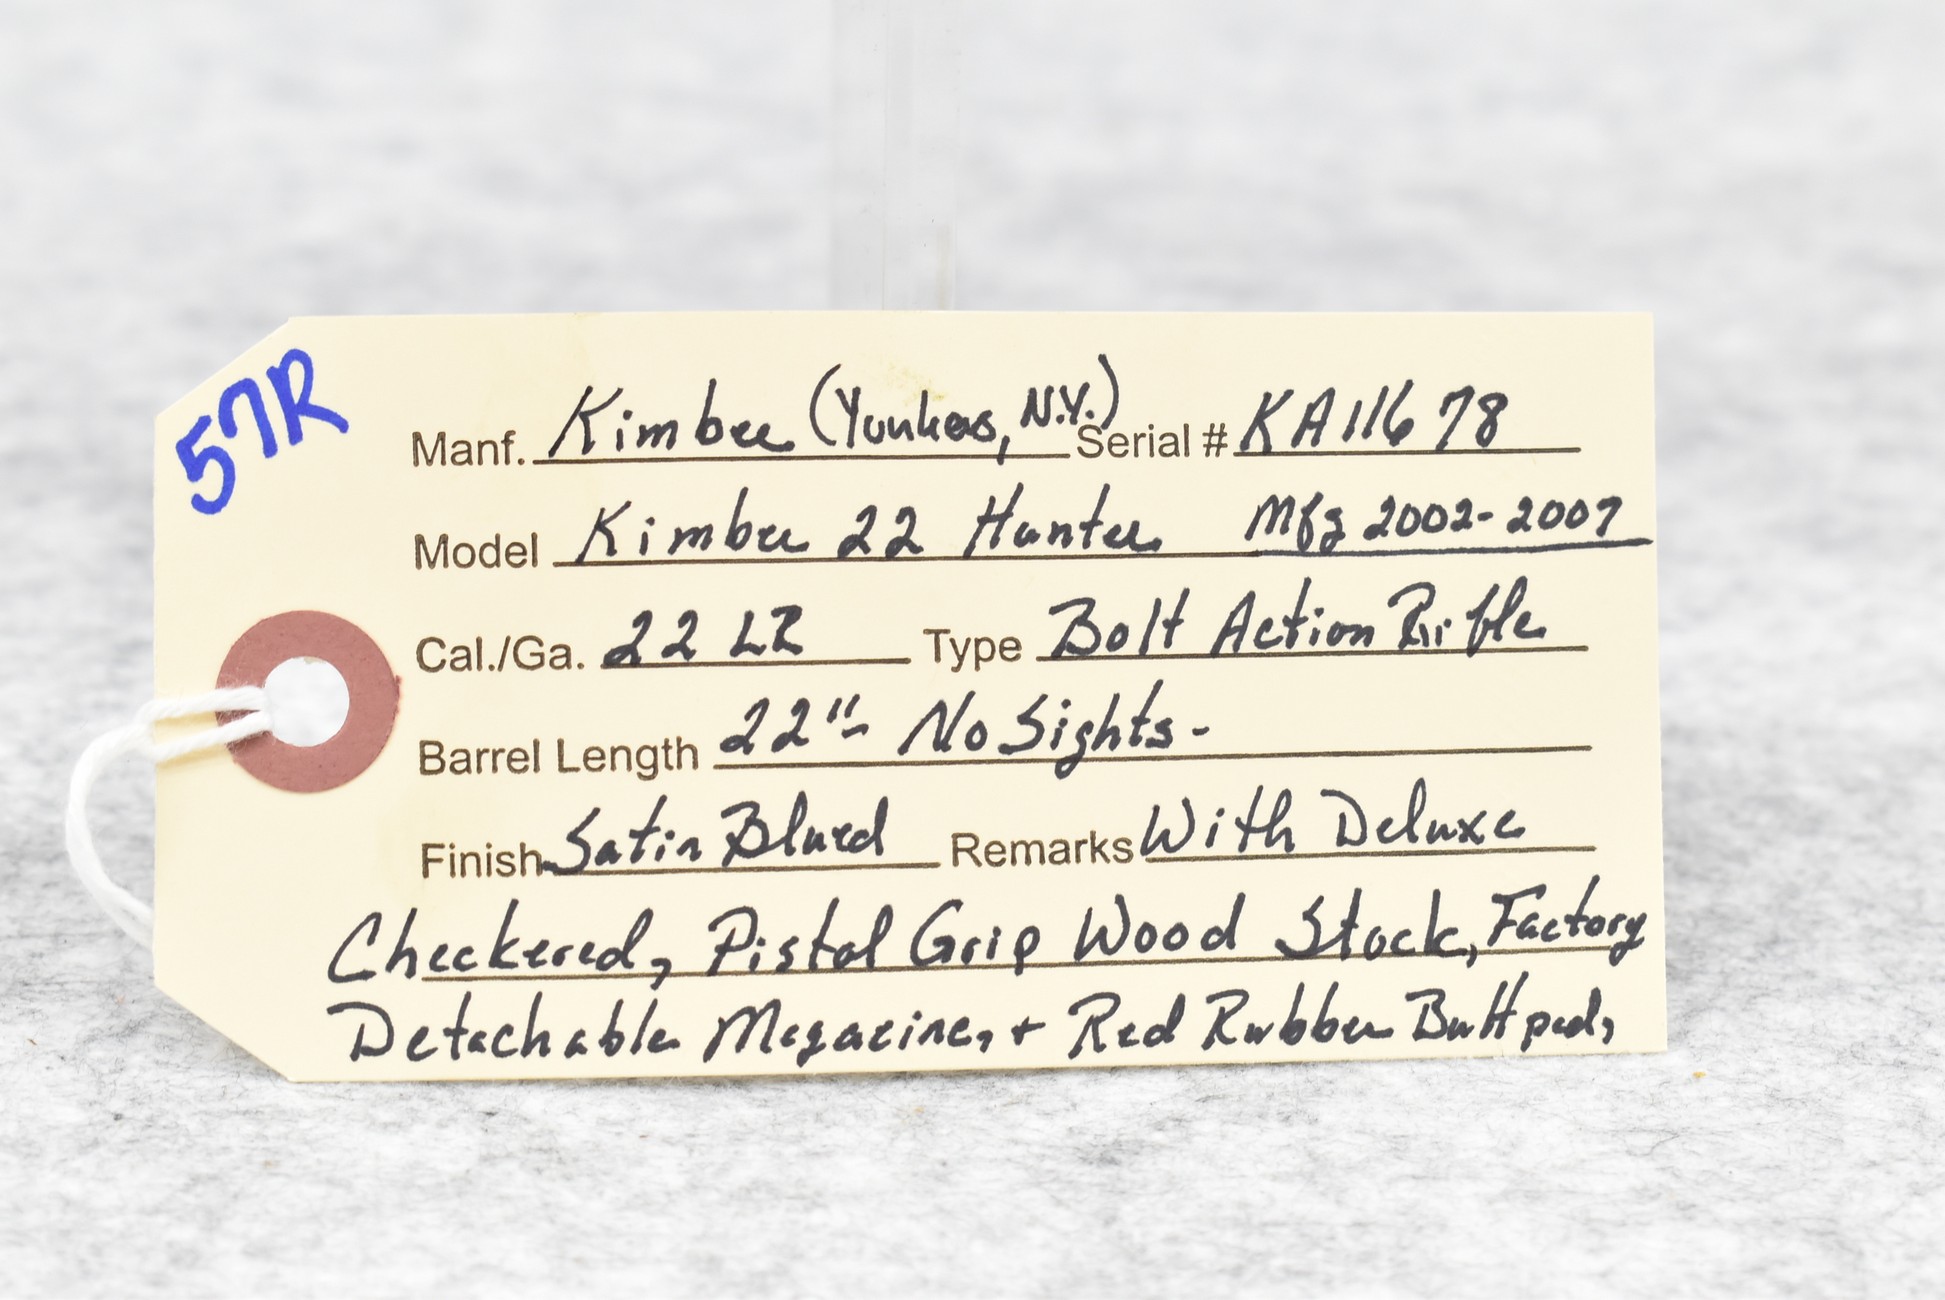 57R
Manf. Kimber (Yonkers, N.Y.) Serial # KA11678
Model Kimber 22 Hunter Mfg 2002-2007
Cal./Ga. 22 LR Type Bolt Action Rifle
Barrel Length 22"- No Sights-
Finish Satin Blued Remarks With Deluxe
Checkered, Pistol Grip Wood Stock, Factory
Detachable Magazine, + Red Rubber Buttpad,